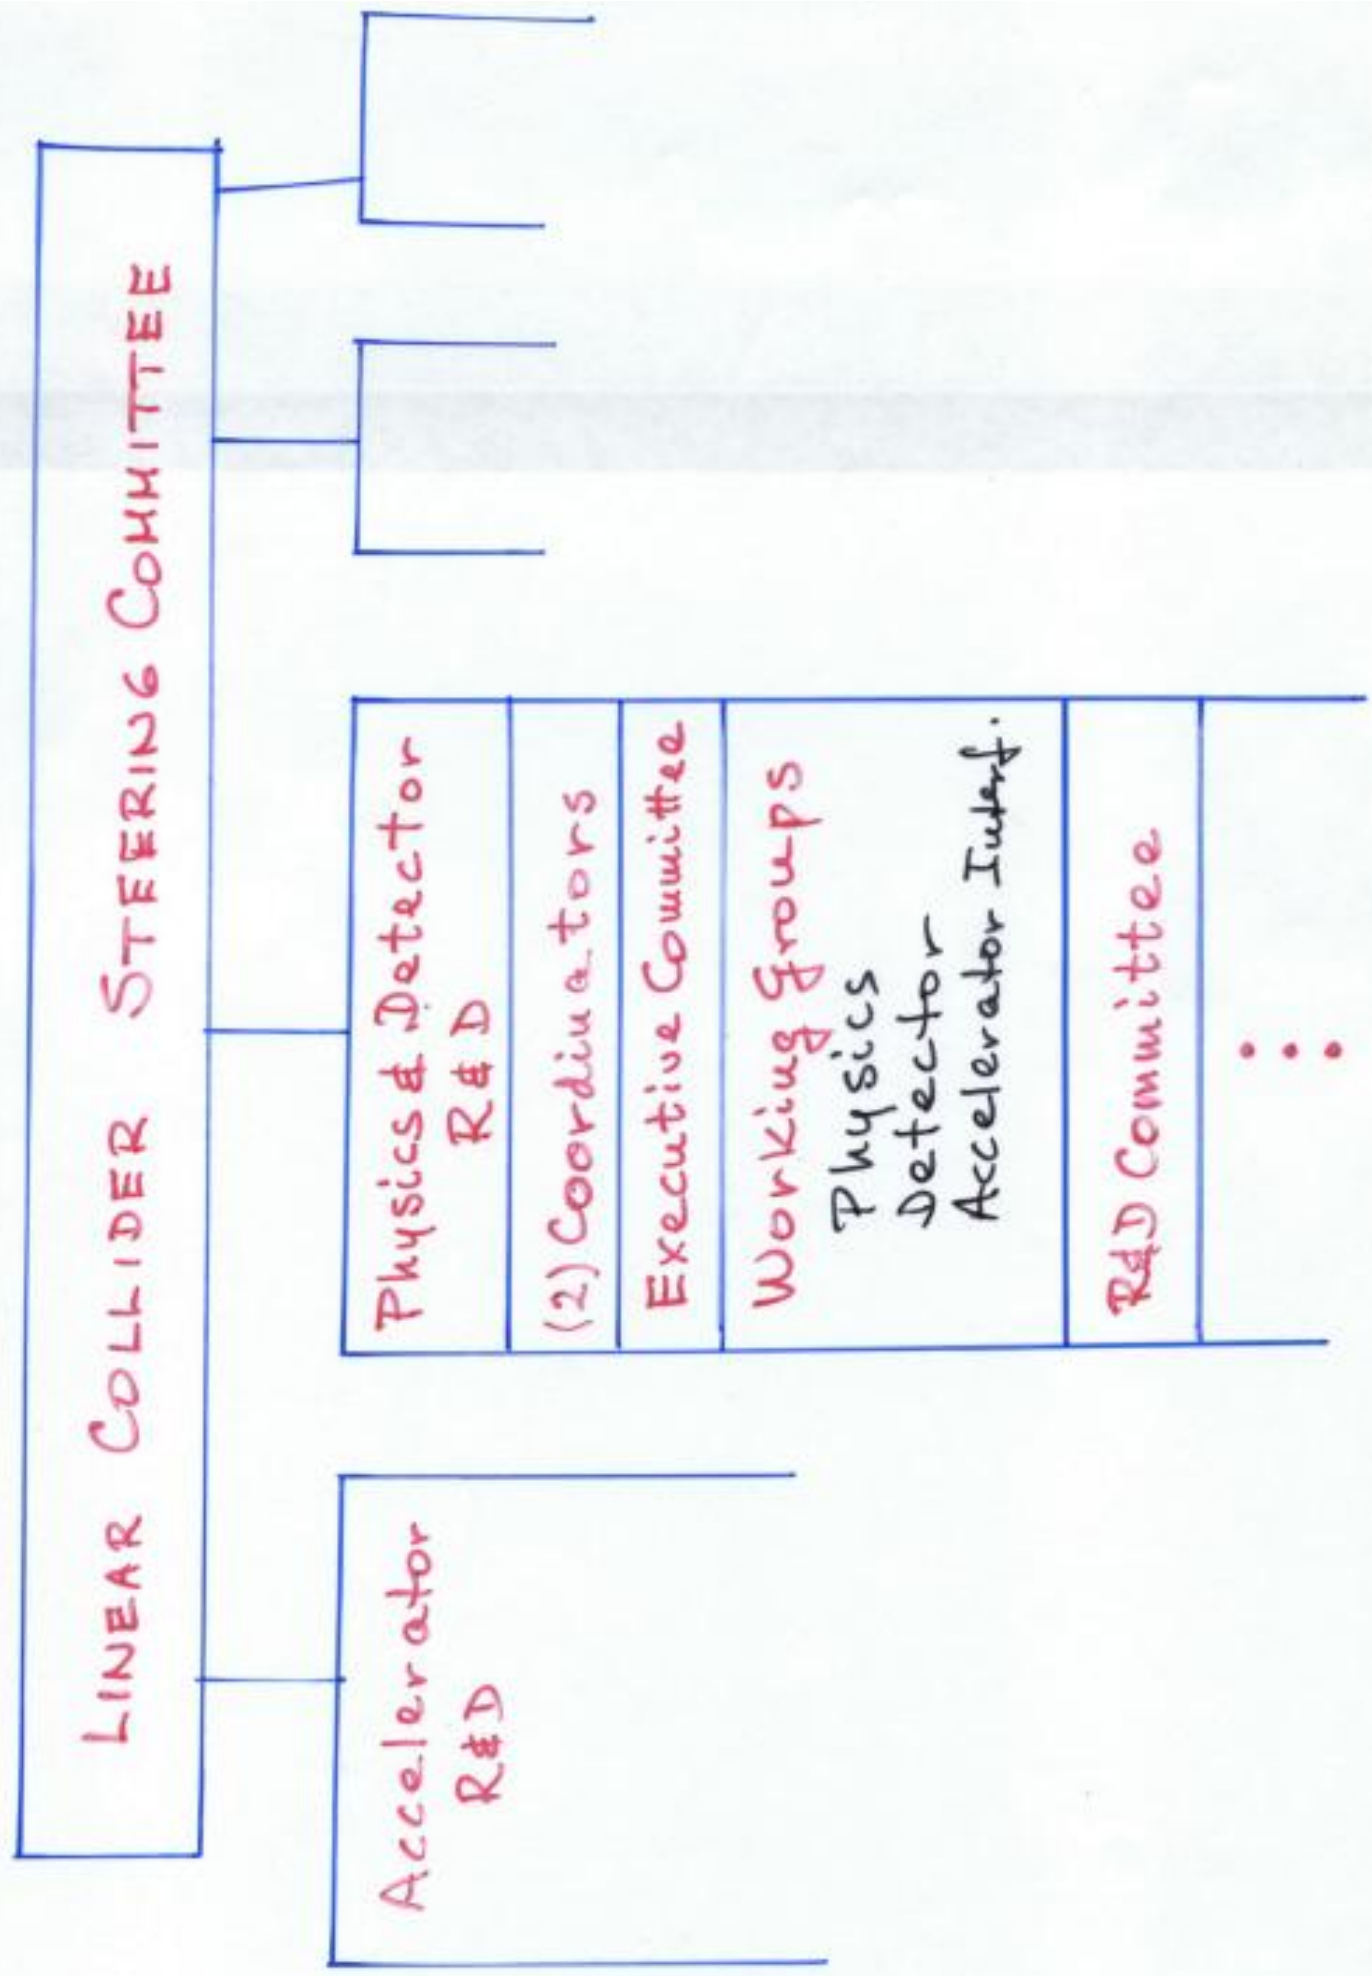 LINEAR COLLIDER STEERING COMMITTEE
Accelerator
R&D
Physics & Detector
R&D
(2) Coordinators
Executive Committee
Working Groups
Physics
Detector
Accelerator Interf.
R&D Committee
...